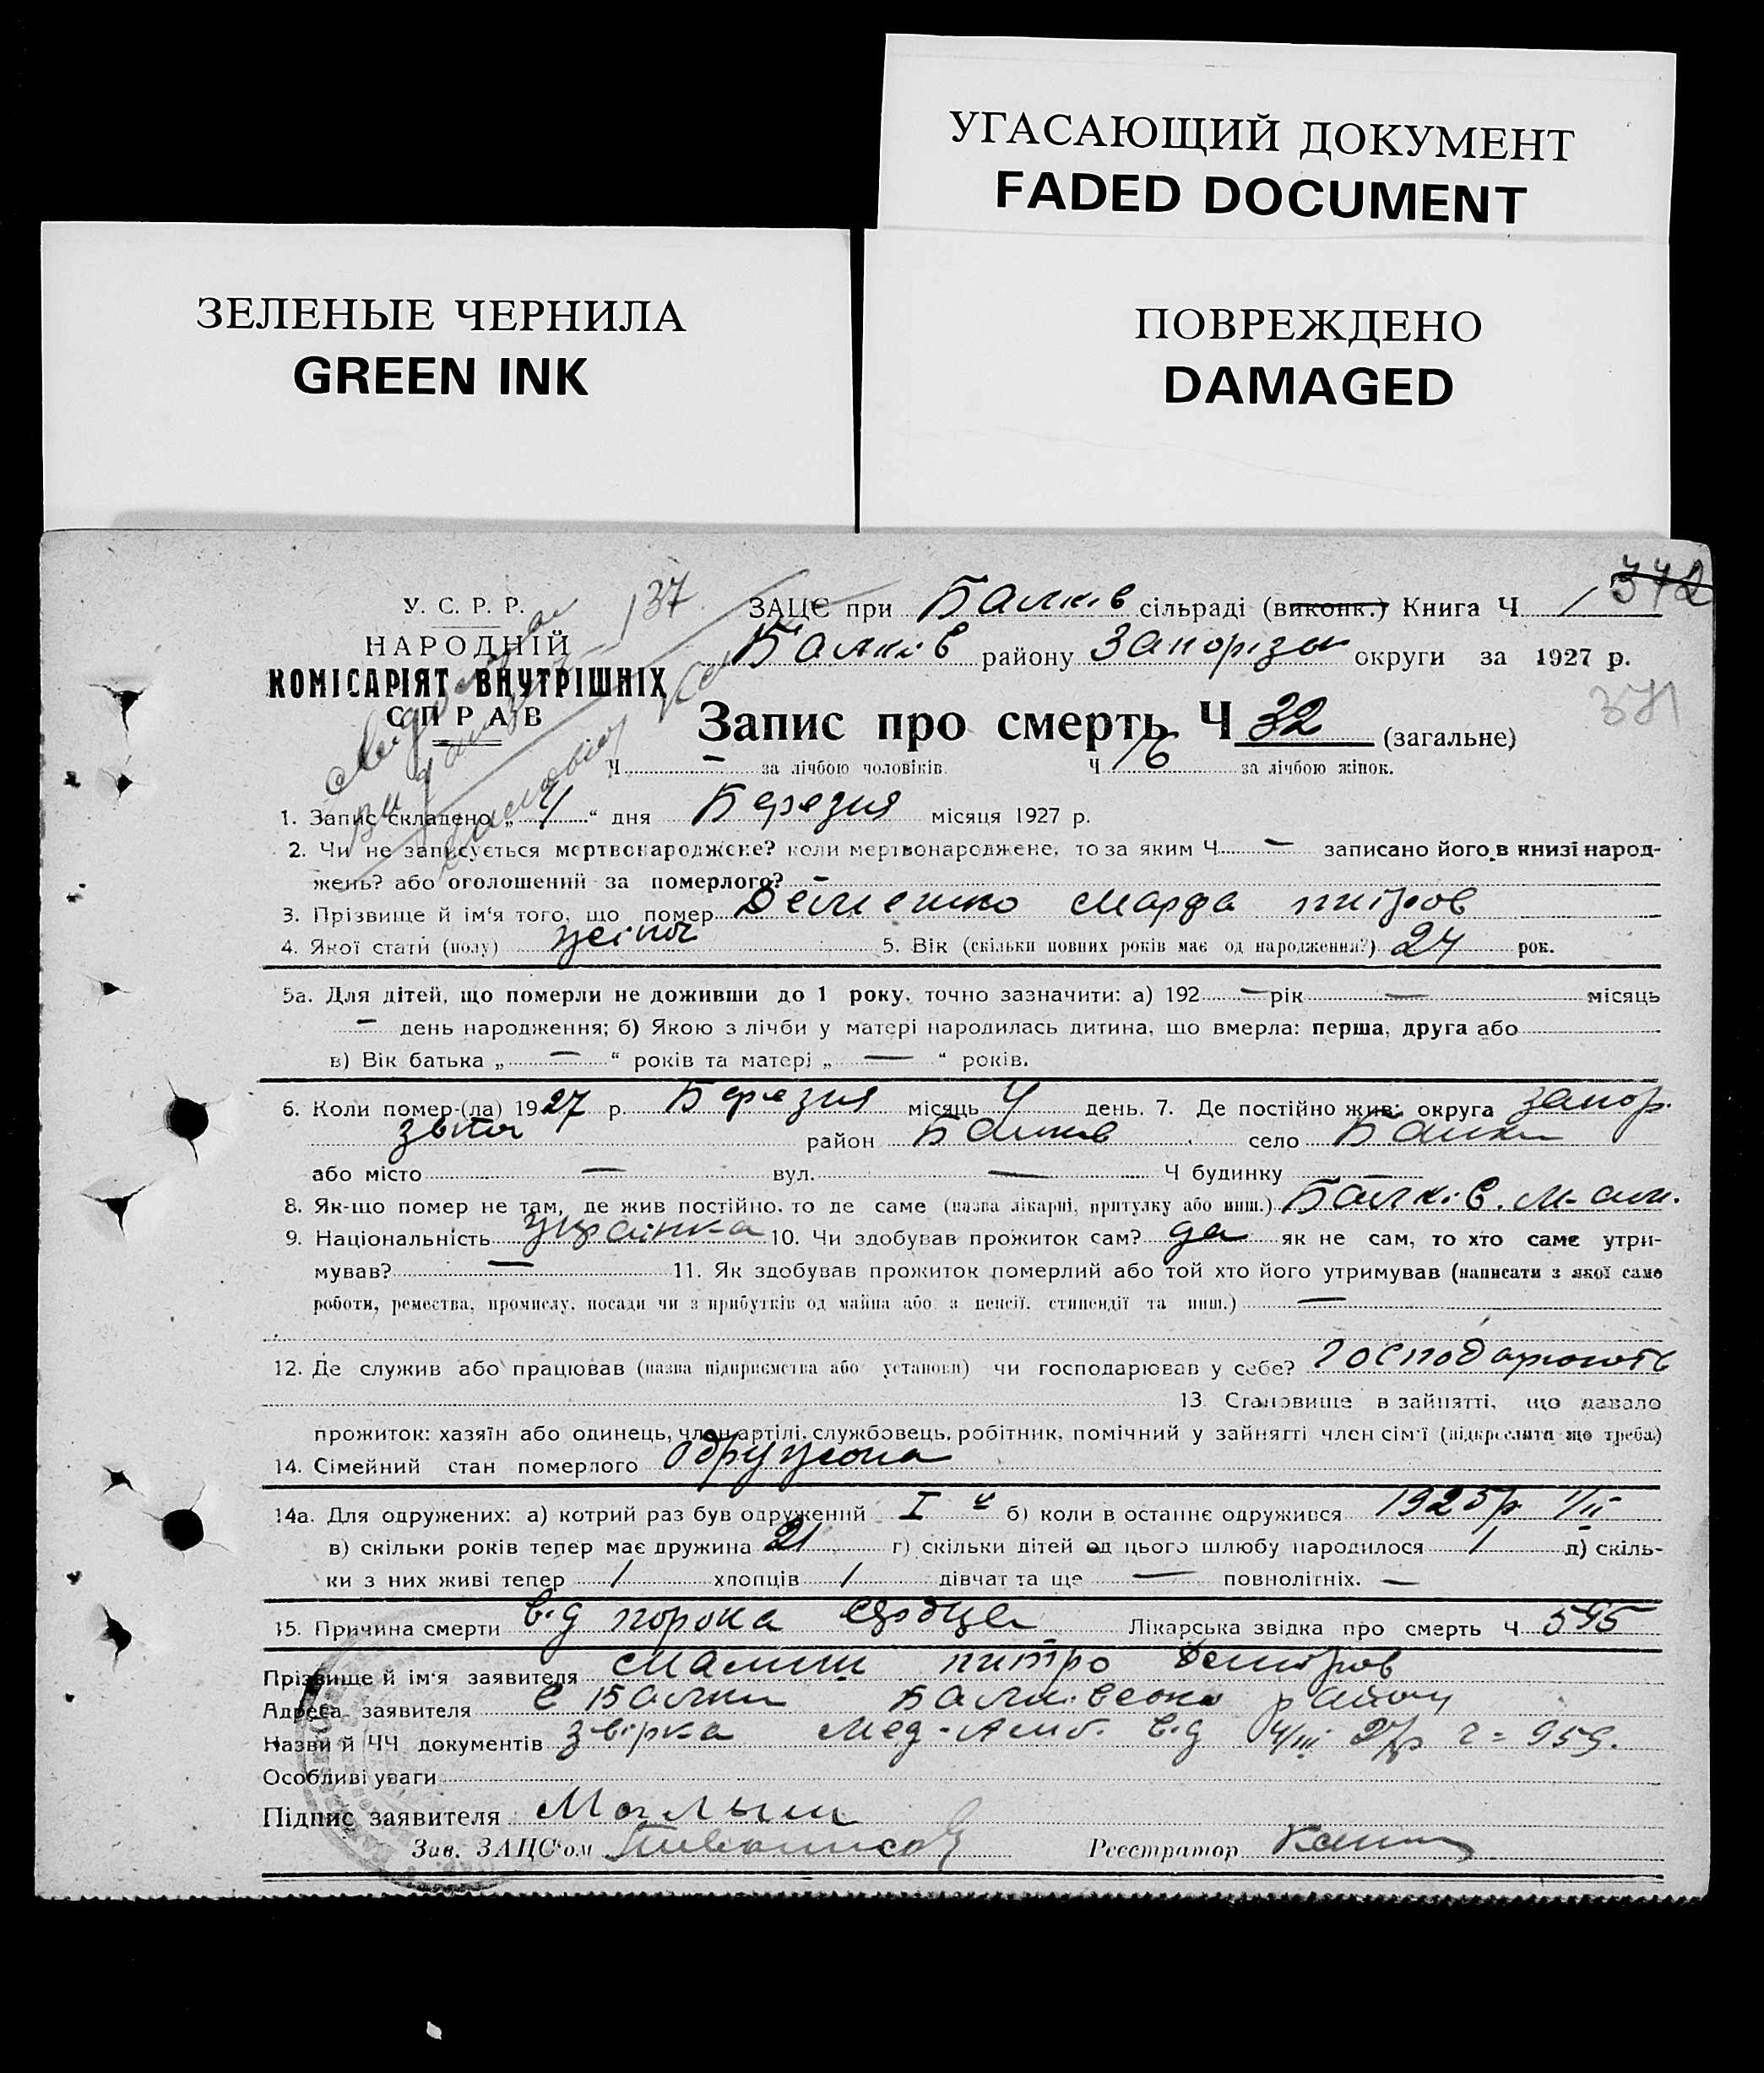 УГАСАЮЩИЙ ДОКУМЕНТ
FADED DOCUMENT
ЗЕЛЕНЫЕ ЧЕРНИЛА
GREEN INK
ПОВРЕЖДЕНО
DAMAGED
372
У. С. Р. Р.
НАРОДНІЙ
КОМІСАРІЯТ ВНУТРІШНІХ
СПРАВ
137
ЗАЦС при Балків сільраді (виконк.) Книга Ч 1
Балків району Запорізьк округи за 1927 р.
371
Запис про смерть Ч 32 (загальне)
Ч — за лічбою чоловіків. Ч 16 за лічбою жінок.
1. Запис складено „ 4 “ дня Березня місяця 1927 р.
2. Чи не записується мертвонароджене? коли мертвонароджене, то за яким Ч — записано його в книзі народ-
жень? або оголошений за померлого? —
3. Прізвище й ім‘я того, що помер Марфа
4. Якої стати (полу) жіноч 5. Вік (скільки повних років має од народження?) 24 рок.
5а. Для дітей, що померли не доживши до 1 року, точно зазначити: а) 192 — рік — місяць
— день народження; б) Якою з лічби у матері народилась дитина, що вмерла: перша, друга або
в) Вік батька „ — “ років та матері „ — “ років.
6. Коли помер-(ла) 1927 р. Березня місяць 4 день. 7. Де постійно жив: округа Запор.
район Балків село Балки
або місто — вул. — Ч будинку —
8. Як-що помер не там, де жив постійно, то де саме (назва лікарні, притулку або инш.) Балків.
9. Національність Українка 10. Чи здобував прожиток сам? да як не сам, то хто саме утри-
мував? — 11. Як здобував прожиток померлий або той хто його утримував (написати з якої саме
роботи, ремества, промислу, посади чи з прибутків од майна або з пенсії, стипендії та инш.) —
12. Де служив або працював (назва підприємства або установи) чи господарював у себе?
13 Становище в зайнятті, що давало
прожиток: хазяїн або одинець, член артілі, службовець, робітник, помічний у зайнятті член сім‘ї (підкреслити що треба)
14. Сімейний стан померлого одружона
14а. Для одружених: а) котрий раз був одружений I й б) коли в останнє одружився 1925 р 1/II
в) скільки років тепер має дружина 21 г) скільки дітей од цього шлюбу народилося 1 д) скіль-
ки з них живі тепер 1 хлопців 1 дівчат та ще — повнолітніх. —
15. Причина смерти від порока сердца Лікарська звідка про смерть Ч 595
Прізвище й ім‘я заявителя Малиш питро
Адреса заявителя с Балки Балківсоко району
Назви й ЧЧ документів Мед-Амб. від 4/III 27р 959.
Особливі уваги
Підпис заявителя Малыш
Зав. ЗАЦС‘ом Реєстратор